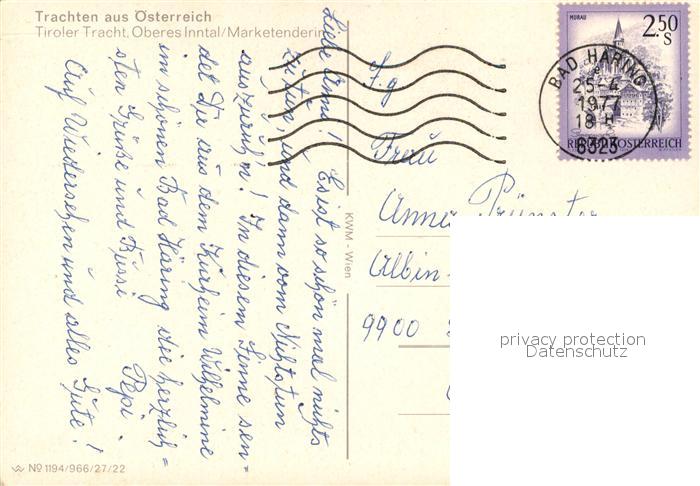 Trachten aus Österreich
Tiroler Tracht, Oberes Inntal/Marketenderin
Liebe Anni! Es ist so schön mal nichts
zu tun, und dann vom Nichtstun
auszuruh'n! In diesem Sinne sen=
det Dir aus dem Kurheim Wilhelmine
im schönen Bad Häring die herzlich=
sten Grüße und Bussi Pepi.
Auf Wiedersehen und alles Gute!
KWM - Wien
Nº 1194/966/27/22
MURAU
2.50
S
REPUBLIK ÖSTERREICH
BAD HÄRING
25-4
1977
18 H
6323
Frau
Anna Prünster
Albin-
9900
privacy protection
Datenschutz